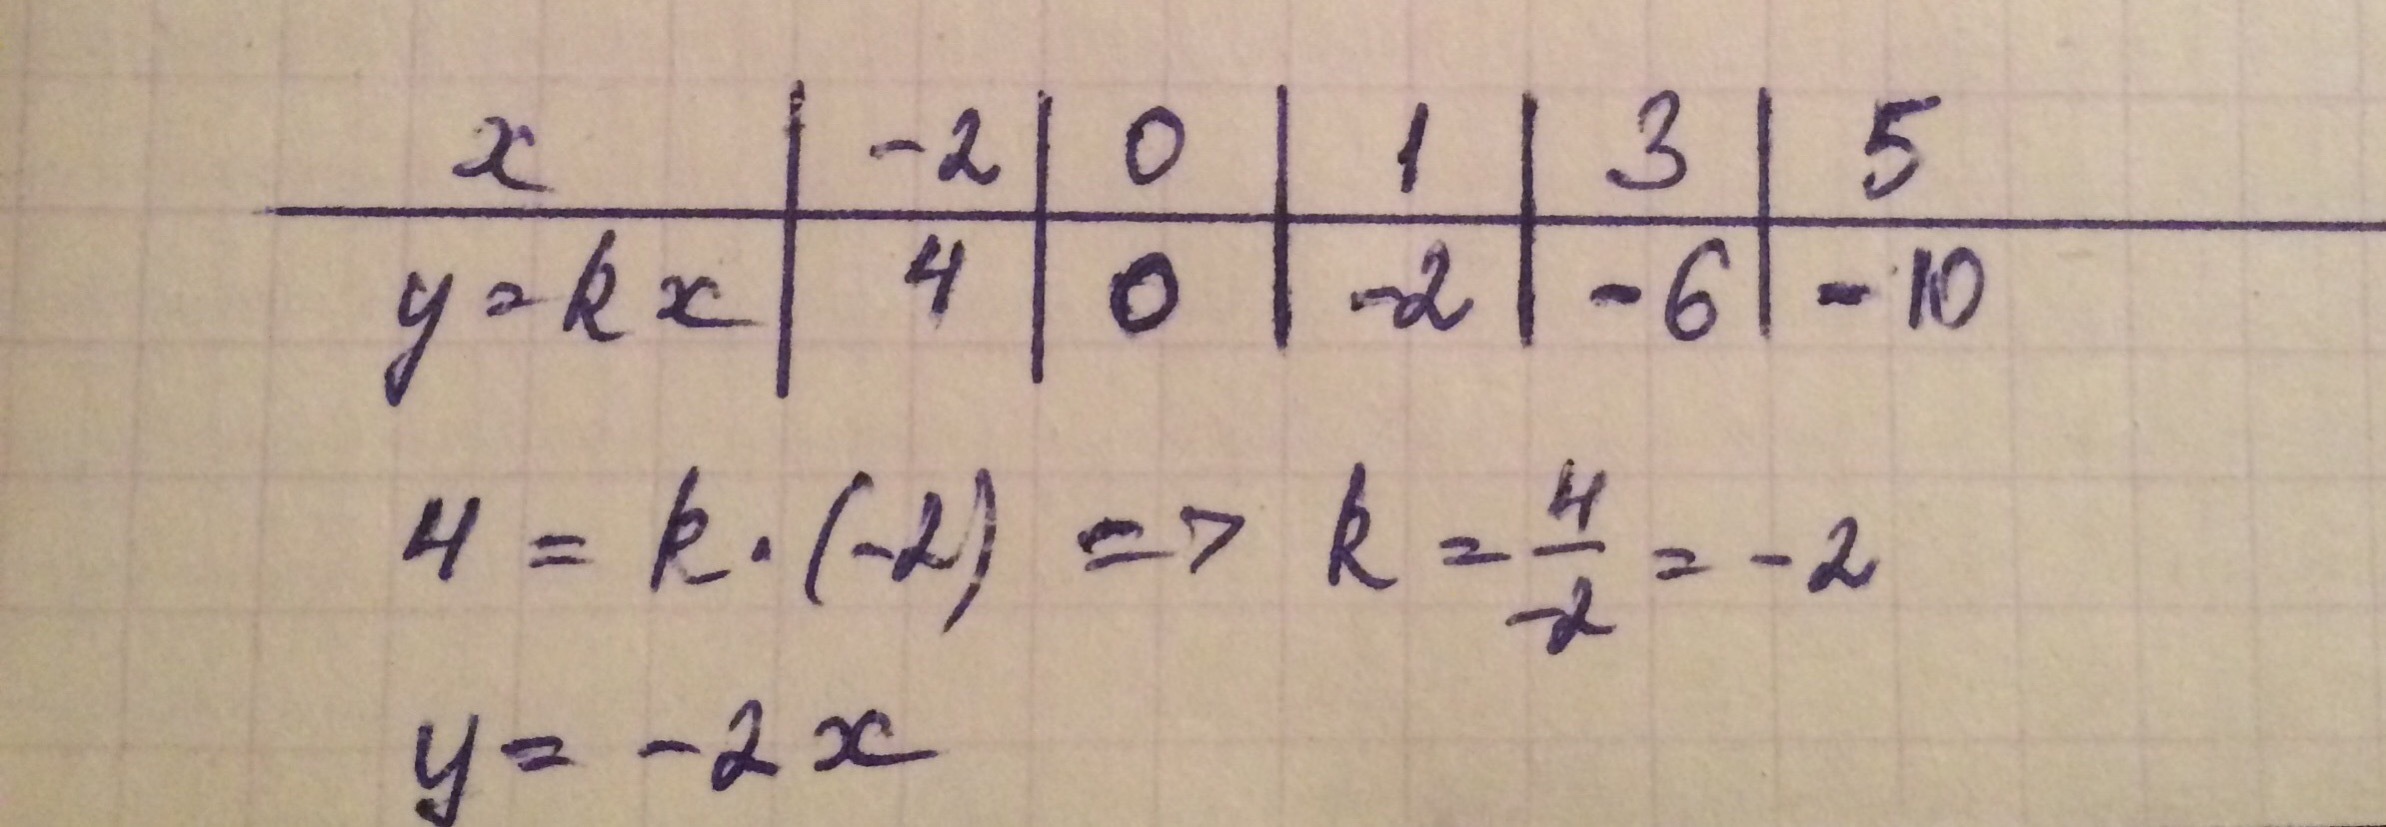 x | -2 | 0 | 1 | 3 | 5
y = kx | 4 | 0 | -2 | -6 | -10
4 = k · (-2) => k = 4/-2 = -2
y = -2x